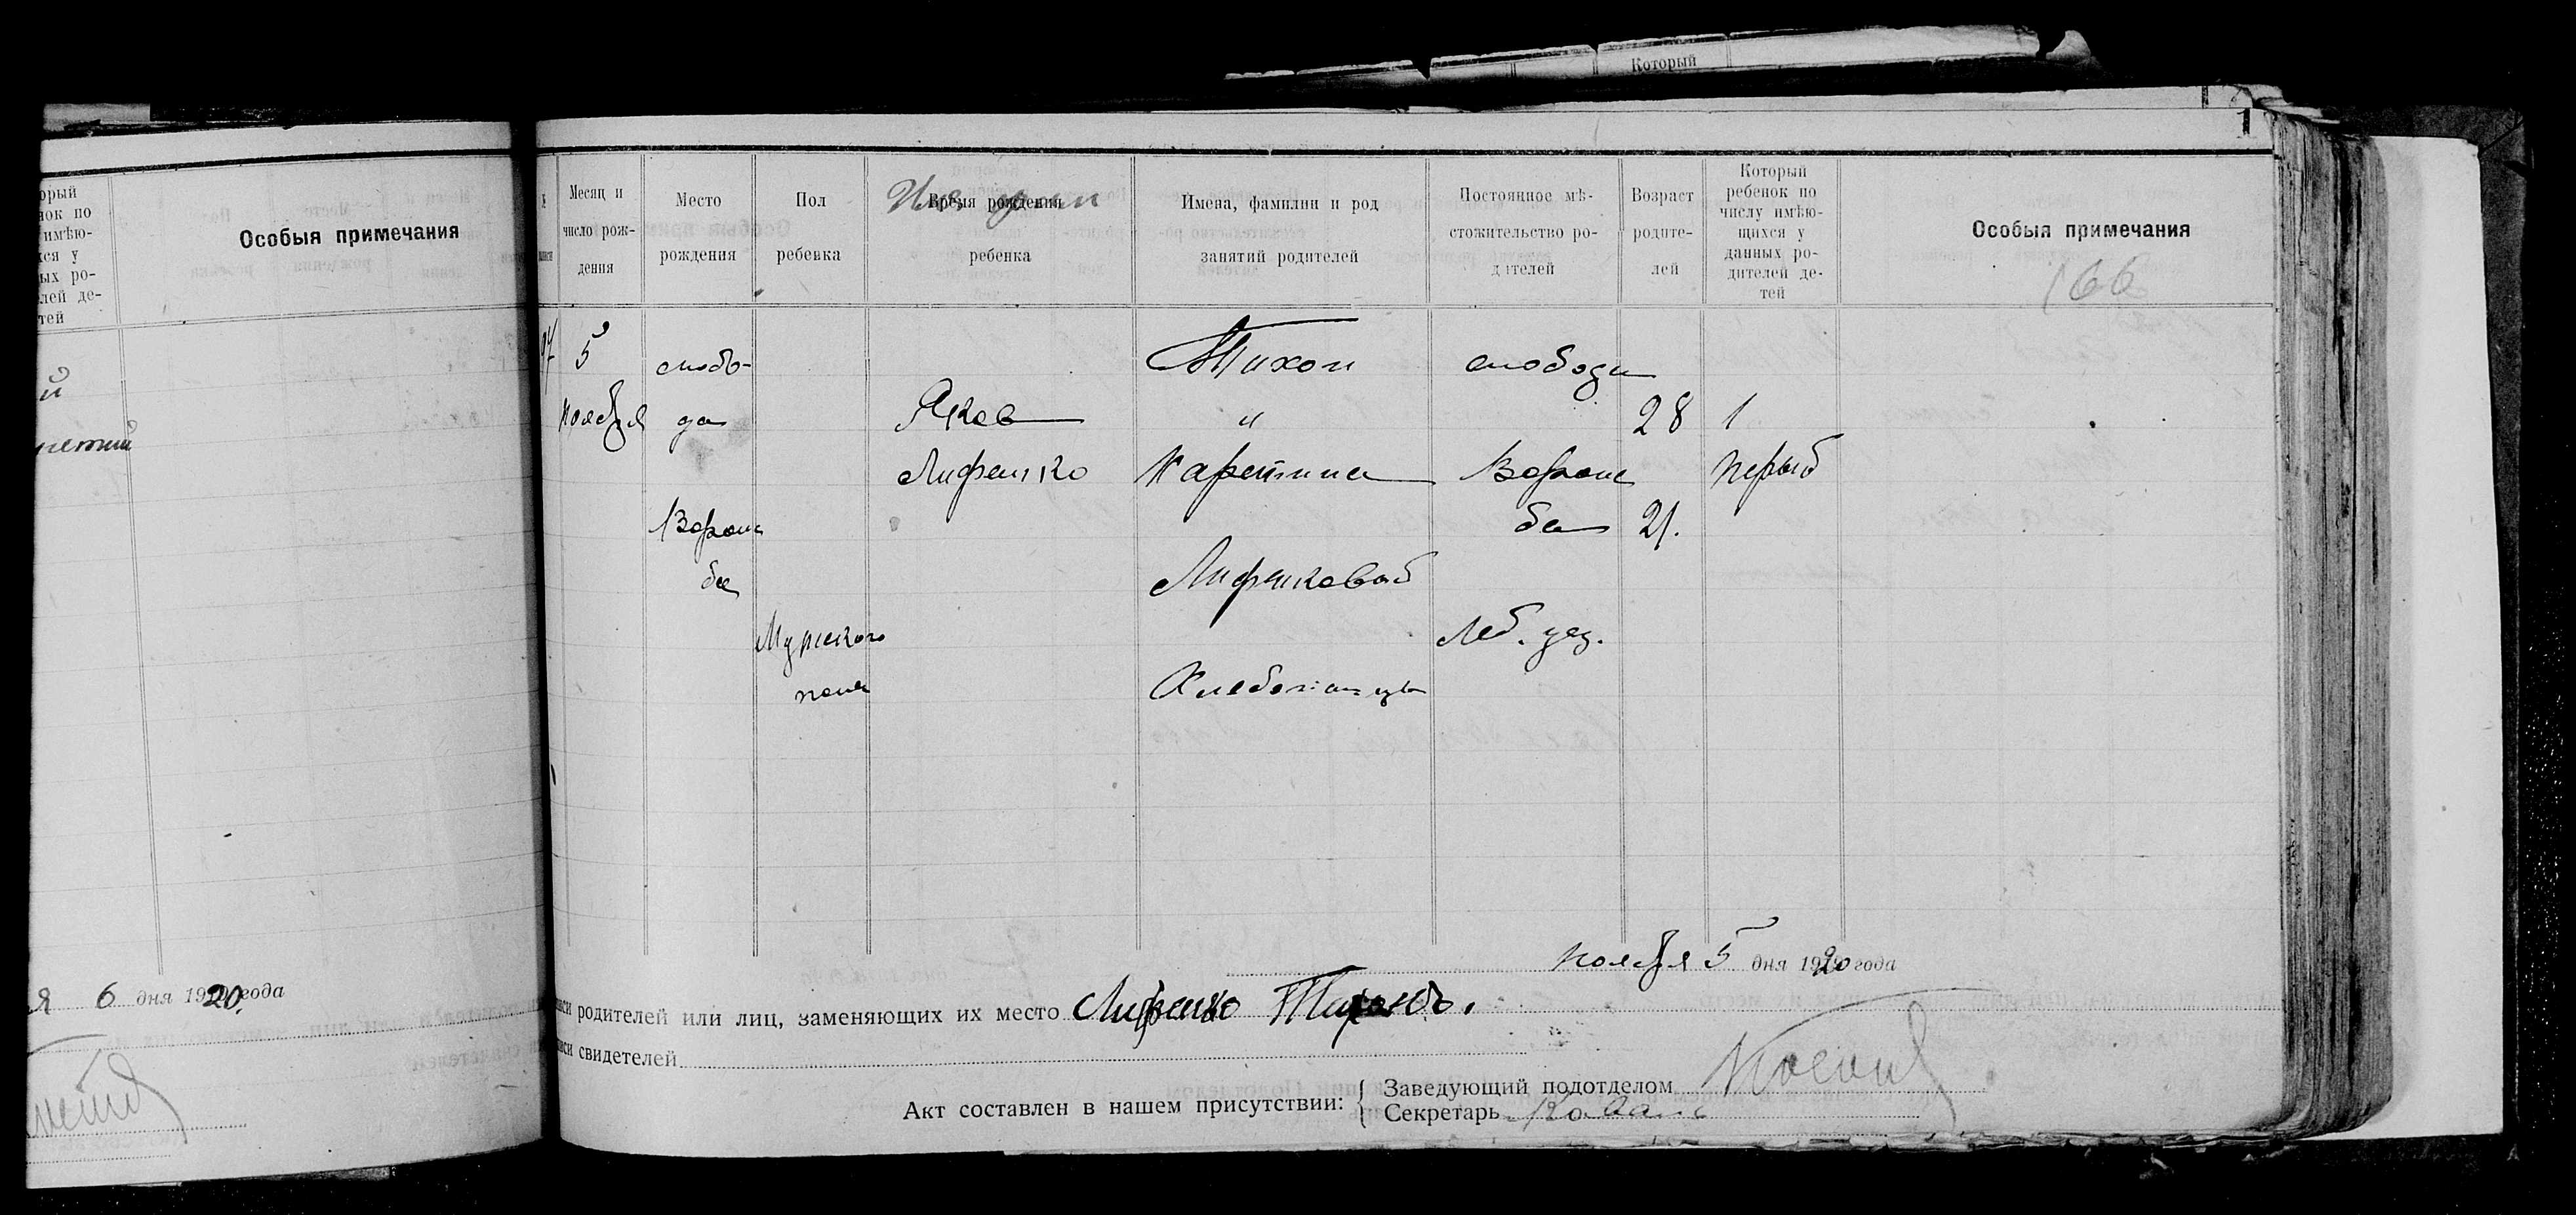 Который
1
орый
нок по
имѣю-
хся у
ых ро-
лей де-
тей
Особыя примечания
й
6 дня 1920 года
Месяц и
число рож-
дения
Место
рождения
Пол
ребенка
Время рождения
ребенка
Имена, фамилии и род
занятий родителей
Постоянное мѣ-
стожительство ро-
дителей
Возраст
родите-
лей
Который
ребенок по
числу имѣю-
щихся у
данных ро-
дителей де-
тей
Особыя примечания
166
5
ноября
слобо-
да
Ворож
ба
Мужского
пола
Яков
Лифенко
Тихон
и
Харитина
Лифенковы
Хлебопашцы
слободы
Ворож
ба
Леб. уез.
28
21.
1
первый
ноября 5 дня 1920 года
родителей или лиц, заменяющих их место Лифенко Тихонъ.
свидетелей
Акт составлен в нашем присутствии:
Заведующий подотделом
Секретарь